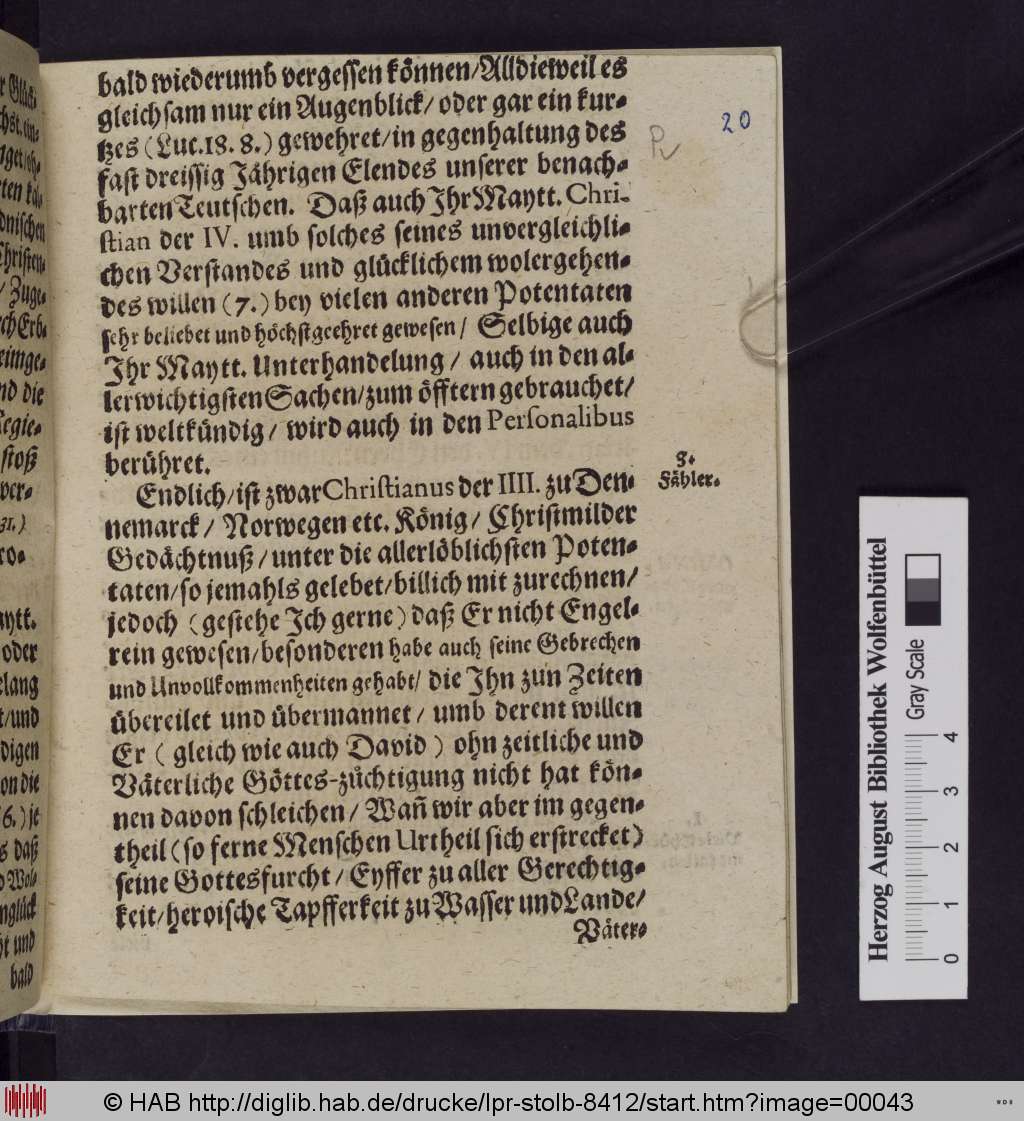 bald wiederumb vergessen können/Alldieweil es
gleichsam nur ein Augenblick/ oder gar ein kur-
tzes (Luc.18. 8.) gewehret/in gegenhaltung des
fast dreissig Jährigen Elendes unserer benach-
barten Teutschen. Daß auch Ihr Maytt. Chri-
stian der IV. umb solches seines unvergleichli-
chen Verstandes und glücklichem wolergehen-
des willen (7.) bey vielen anderen Potentaten
sehr beliebet und höchstgeehret gewesen/ Selbige auch
Ihr Maytt. Unterhandelung/ auch in den al-
lerwichtigsten Sachen/zum öfftern gebrauchet/
ist weltkündig/ wird auch in den Personalibus
berühret.
Endlich/ist zwar Christianus der IIII. zu Den-
nemarck/ Norwegen etc. König/ Christmilder
Gedächtnuß/unter die allerlöblichsten Poten-
taten/so jemahls gelebet/billich mit zurechnen/
jedoch (gestehe Ich gerne) daß Er nicht Engel-
rein gewesen/besonderen habe auch seine Gebrechen
und Unvollkommenheiten gehabt/ die Ihn zun Zeiten
übereilet und übermannet/ umb derent willen
Er (gleich wie auch David) ohn zeitliche und
Väterliche Göttes-züchtigung nicht hat kön-
nen davon schleichen/ Wañ wir aber im gegen-
theil (so ferne Menschen Urtheil sich erstrecket)
seine Gottesfurcht/ Eyffer zu aller Gerechtig-
keit/heroische Tapfferkeit zu Wasser und Lande/
Väter-
8.
Fähler.
20
Herzog August Bibliothek Wolfenbüttel
Gray Scale
0 1 2 3 4
© HAB http://diglib.hab.de/drucke/lpr-stolb-8412/start.htm?image=00043